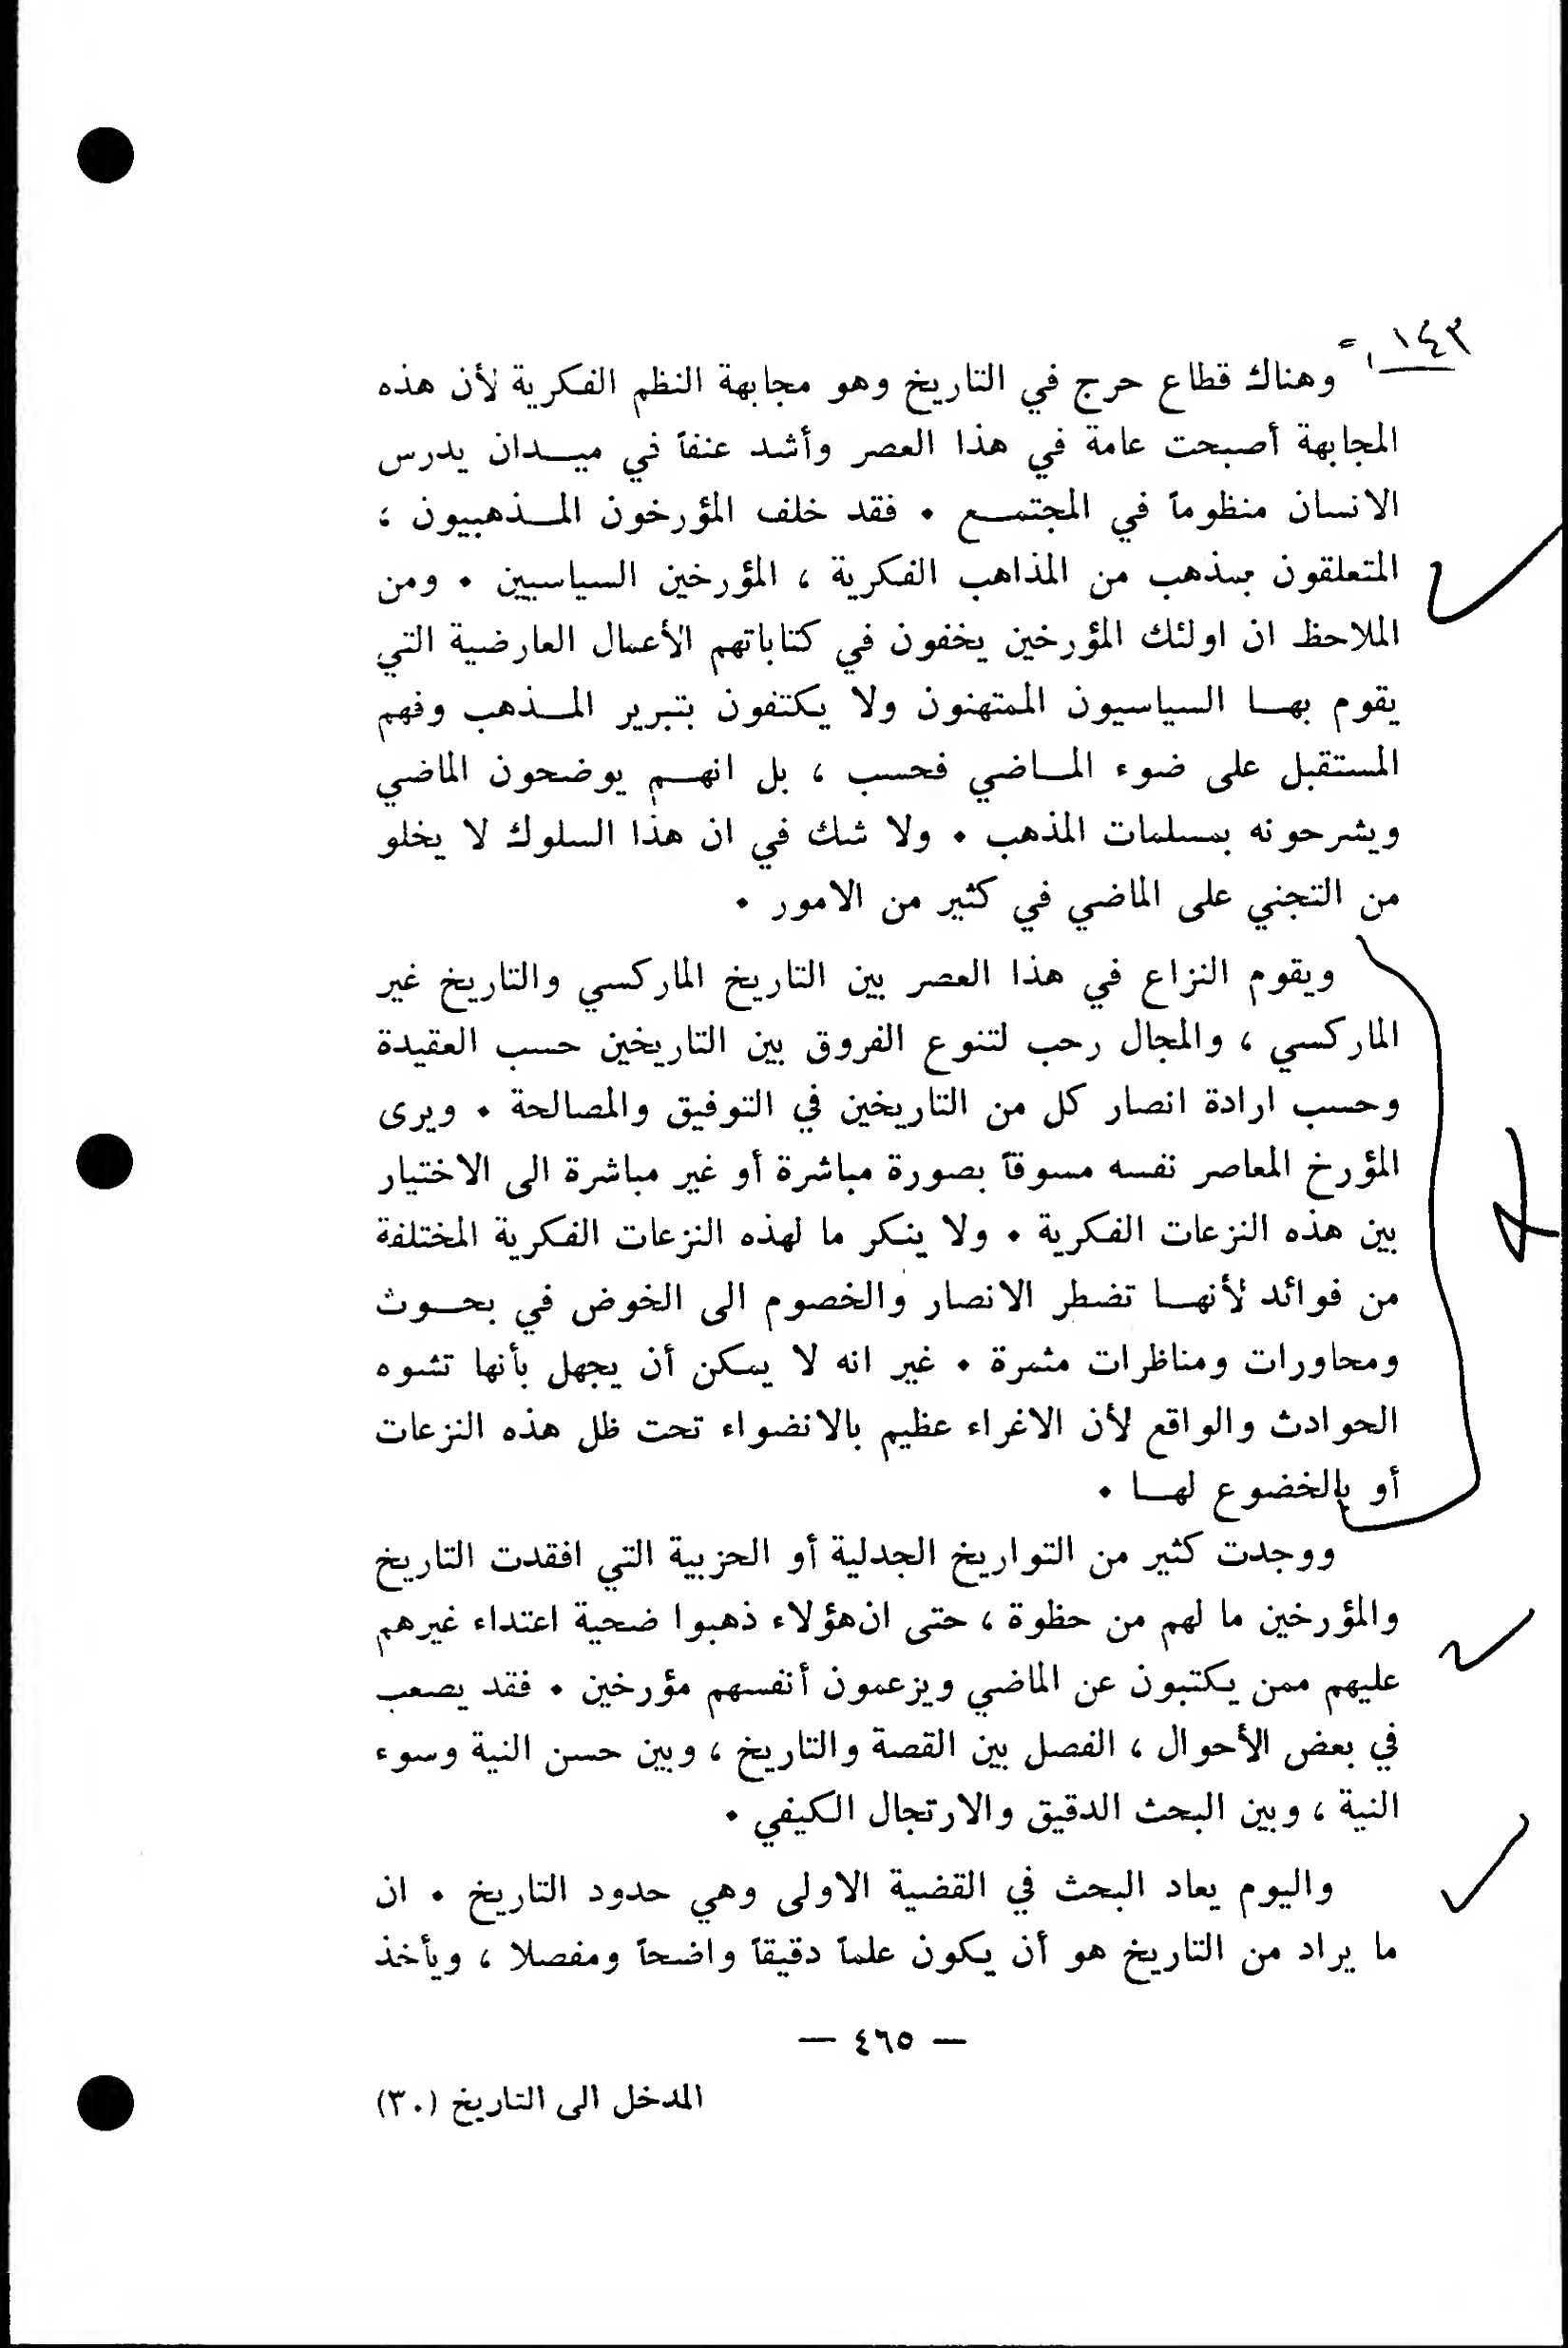 ١٤٣
وهناك قطاع حرج في التاريخ وهو مجابهة النظم الفكرية لأن هذه
المجابهة أصبحت عامة في هذا العصر وأشد عنفاً في ميدان يدرس
الانسان منظوماً في المجتمع ٠ فقد خلف المؤرخون المذهبيون ،
المتعلقون بمذهب من المذاهب الفكرية ، المؤرخين السياسيين ٠ ومن
الملاحظ ان اولئك المؤرخين يخفون في كتاباتهم الأعمال العارضية التي
يقوم بها السياسيون الممتهنون ولا يكتفون بتبرير المذهب وفهم
المستقبل على ضوء الماضي فحسب ، بل انهم يوضحون الماضي
ويشرحونه بمسلمات المذهب ٠ ولا شك في ان هذا السلوك لا يخلو
من التجني على الماضي في كثير من الامور ٠
ويقوم النزاع في هذا العصر بين التاريخ الماركسي والتاريخ غير
الماركسي ، والمجال رحب لتنوع الفروق بين التاريخين حسب العقيدة
وحسب ارادة انصار كل من التاريخين في التوفيق والمصالحة ٠ ويرى
المؤرخ المعاصر نفسه مسوقاً بصورة مباشرة أو غير مباشرة الى الاختيار
بين هذه النزعات الفكرية ٠ ولا ينكر ما لهذه النزعات الفكرية المختلفة
من فوائد لأنها تضطر الانصار والخصوم الى الخوض في بحوث
ومحاورات ومناظرات مثمرة ٠ غير انه لا يمكن أن يجهل بأنها تشوه
الحوادث والواقع لأن الاغراء عظيم بالانضواء تحت ظل هذه النزعات
أو بالخضوع لها ٠
ووجدت كثير من التواريخ الجدلية أو الحزبية التي افقدت التاريخ
والمؤرخين ما لهم من حظوة ، حتى ان هؤلاء ذهبوا ضحية اعتداء غيرهم
عليهم ممن يكتبون عن الماضي ويزعمون أنفسهم مؤرخين ٠ فقد يصعب
في بعض الأحوال ، الفصل بين القصة والتاريخ ، وبين حسن النية وسوء
النية ، وبين البحث الدقيق والارتجال الكيفي ٠
واليوم يعاد البحث في القضية الاولى وهي حدود التاريخ ٠ ان
ما يراد من التاريخ هو أن يكون علماً دقيقاً واضحاً ومفصلا ، ويأخذ
— ٤٦٥ —
المدخل الى التاريخ (٣٠)